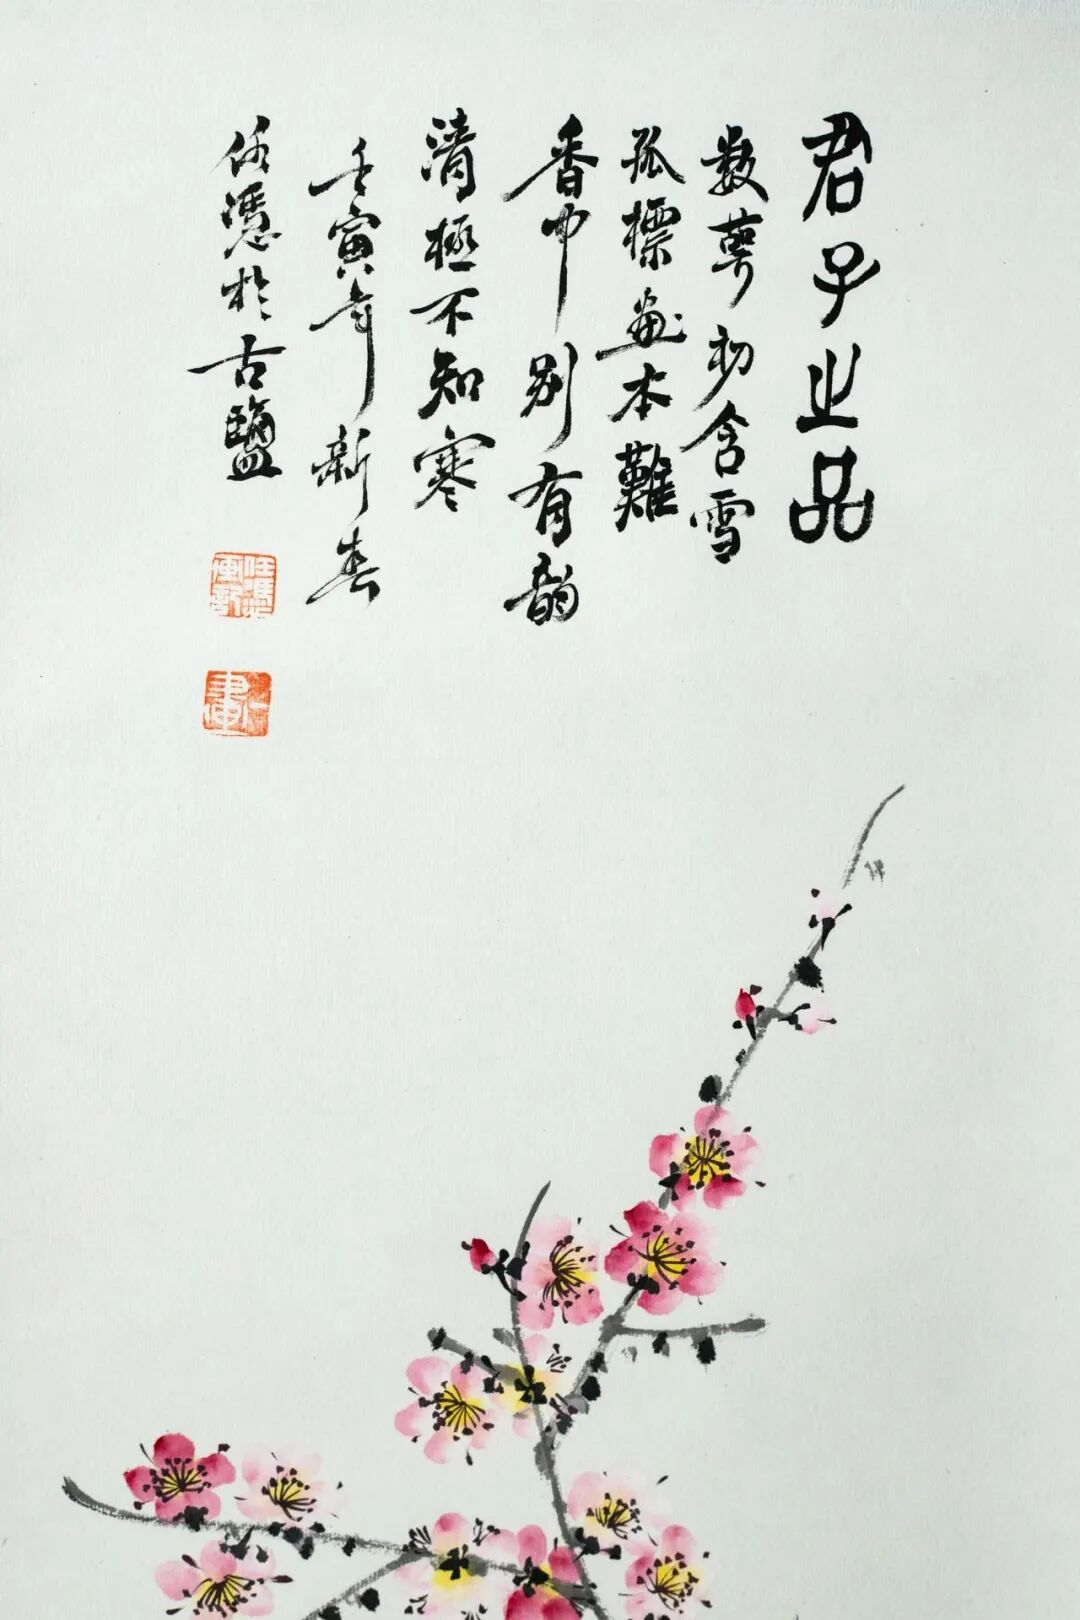 君子之品
数萼初含雪
孤標畫本難
香中別有韵
清極不知寒
壬寅年新春
任憑於古鹽